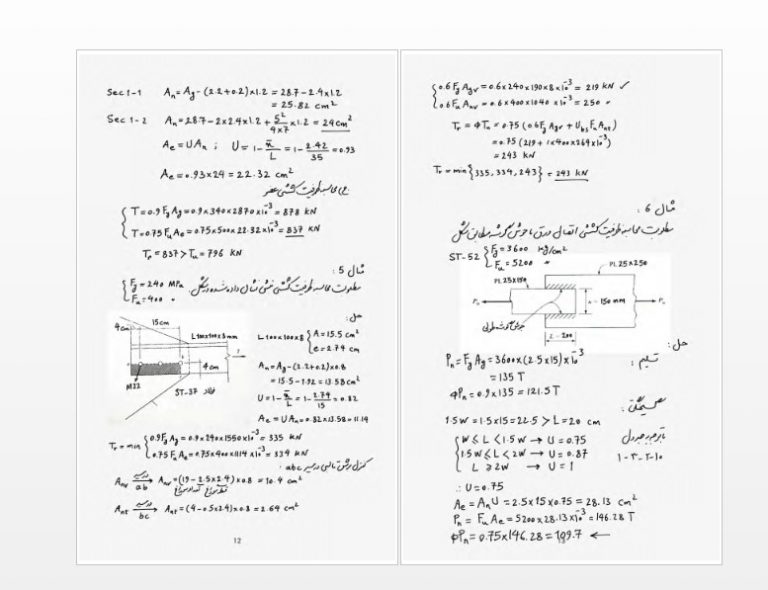 Sec 1-1 An = Ag - (2.2+0.2)×1.2 = 28.7 - 2.4×1.2
= 25.82 cm²
Sec 1-2 An = 28.7 - 2×2.4×1.2 + 5²/4×7 ×1.2 = 24 cm²
Ae = UAn ; U = 1 - x̄/L = 1 - 2.42/35 = 0.93
Ae = 0.93×24 = 22.32 cm²
محاسبه ظرفیت کششی عضو:
T = 0.9 Fy Ag = 0.9×340×2870×10⁻³ = 878 kN
T = 0.75 Fu Ae = 0.75×500×22.32×10⁻³ = 837 kN
Tr = 837 > Tu = 796 kN
مثال 5 :
مطلوبست محاسبه ظرفیت کششی نبشی نشان داده شده در شکل.
Fy = 240 MPa
Fu = 400 "
حل:
4cm 15cm
L100×100×8mm
T
4cm
M22
ST-37 فولاد
L100×100×8 A = 15.5 cm²
e = 2.74 cm
An = Ag - (2.2+0.2)×0.8
= 15.5 - 1.92 = 13.58 cm²
U = 1 - x̄/L = 1 - 2.74/15 = 0.82
Ae = UAn = 0.82×13.58 = 11.14
Tr = min 0.9 Fy Ag = 0.9×240×1550×10⁻³ = 335 kN
0.75 Fu Ae = 0.75×400×1114×10⁻³ = 334 kN
کنترل برش قالبی در مسیر abc :
Anv مسیر ab → Anv = (19 - 2.5×2.4)×0.8 = 10.4 cm²
Ant مسیر bc → Ant = (4 - 0.5×2.4)×0.8 = 2.64 cm²
12
0.6 Fy Agv = 0.6×240×190×8×10⁻³ = 219 kN ✓
0.6 Fu Anv = 0.6×400×1040×10⁻³ = 250 "
Tr = ΦTn = 0.75 (0.6 Fy Agv + Ubs Fu Ant)
= 0.75 (219 + 1×400×264×10⁻³)
= 243 kN
Tr = min {335, 334, 243} = 243 kN
مثال 6 :
مطلوبست محاسبه ظرفیت کششی اتصال ورق با جوش گوشه مطابق شکل
ST-52 Fy = 3600 kg/cm²
Fu = 5200 "
PL 25×150
PL 25×250
Pn
150 mm
Pn
جوش گوشه طولی
L = 200
حل:
تسلیم: Pn = Fy Ag = 3600×(2.5×15)×10⁻³
= 135 T
ΦPn = 0.9×135 = 121.5 T
گسیختگی:
1.5W = 1.5×15 = 22.5 > L = 20 cm
با توجه به جدول
1-2-3-10
W ≤ L < 1.5W → U = 0.75
1.5W ≤ L < 2W → U = 0.87
L ≥ 2W → U = 1
∴ U = 0.75
Ae = AnU = 2.5×15×0.75 = 28.13 cm²
Pn = Fu Ae = 5200×28.13×10⁻³ = 146.28 T
ΦPn = 0.75×146.28 = 109.7 ←